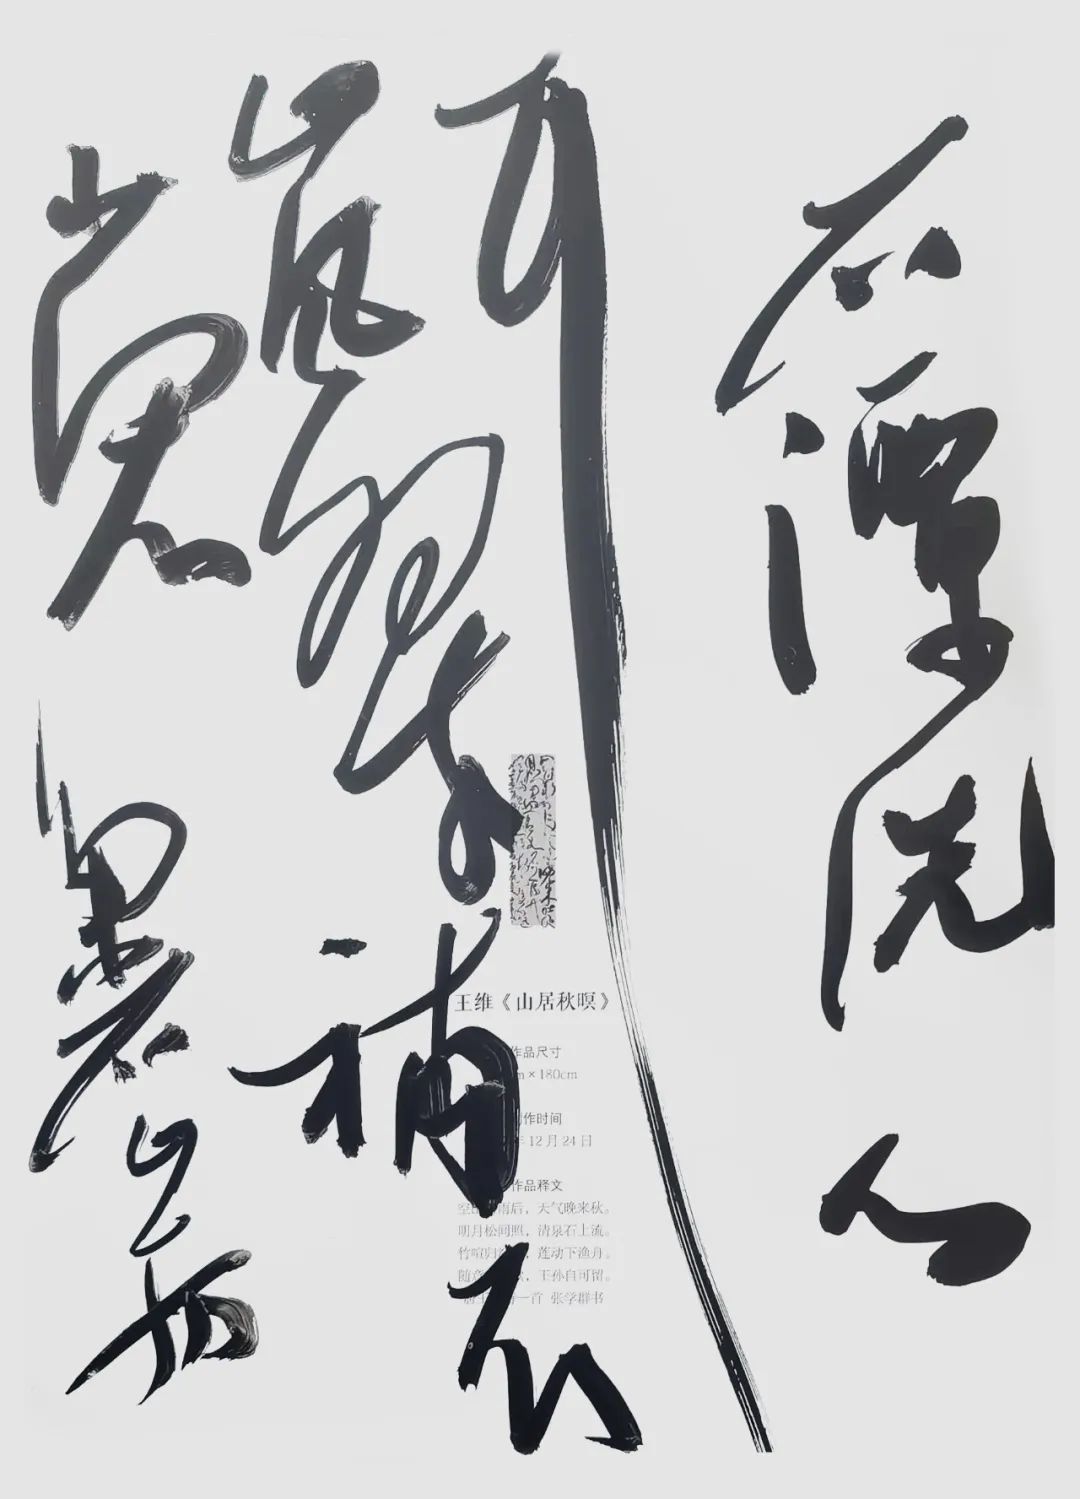 石潭洗心
耳
嵐翠補衣
裳
王维《山居秋暝》
作品尺寸
× 180cm
作时间
年 12 月 24 日
作品释文
雨后，天气晚来秋。
明月松间照，清泉石上流。
竹喧归，莲动下渔舟。
随，王孙自可留。
一首 张学群书